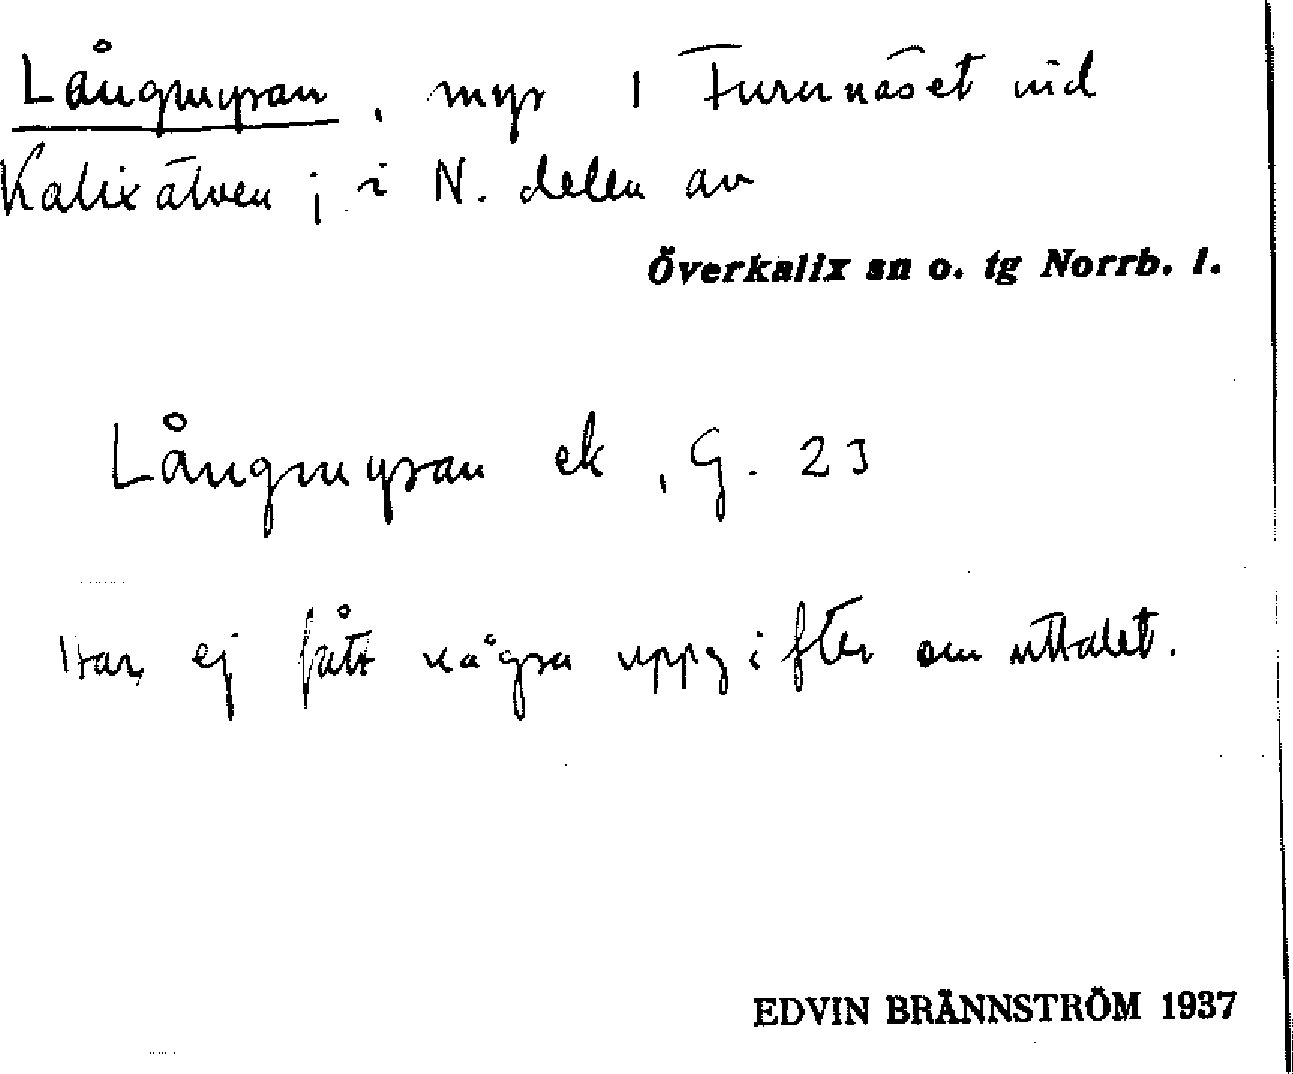 Långmyran, myr i Furunäset vid
Kalixälven; i N. delen av
Överkalix sn o. tg Norrb. l.
Långmyran ek, G. 23
Har ej fått några uppgifter om uttalet.
EDVIN BRÄNNSTRÖM 1937